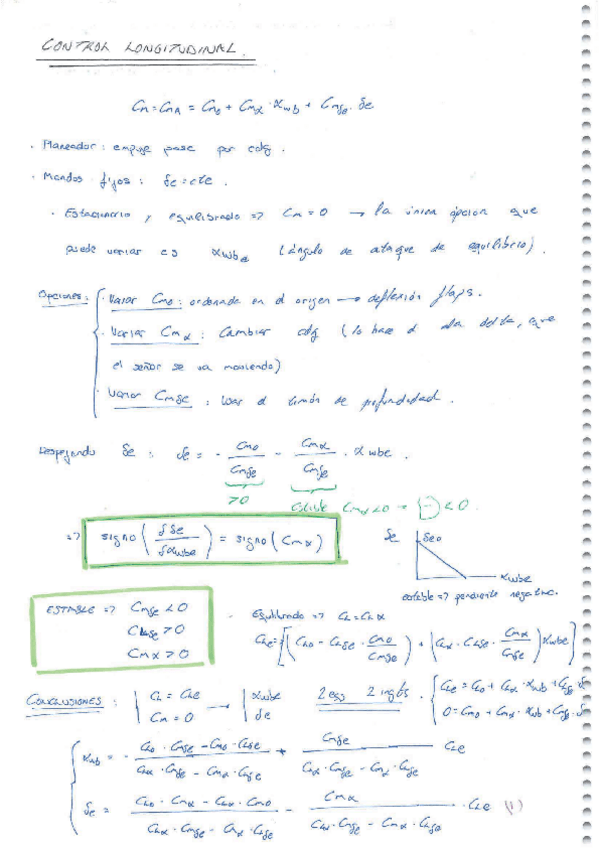 CONTROL LONGITUDINAL.
Cm = CmA = Cm0 + Cmα · αwb + Cmδe · δe
· Planeador: empuje pasa por cdg.
· Mandos fijos: δe = cte.
· Estacionario y equilibrado => Cm = 0 → la única opción que
puede variar es αwbe (ángulo de ataque de equilibrio).
Opciones: · Variar Cm0: ordenada en el origen → deflexión flaps.
· Variar Cmα: Cambiar cdg (lo hace el ala delta, que
el señor se va moviendo)
· Variar Cmδe: usar el timón de profundidad.
Despejando δe: δe = - Cm0/Cmδe - Cmα/Cmδe · αwbe.
>0 estable Cmα<0 → (-) <0.
=> signo (δδe/δαwbe) = signo (Cmα)
δe δe0
αwbe
estable => pendiente negativa.
ESTABLE => Cmδe < 0
CLδe > 0
Cmα > 0
· Equilibrado => CL = CLα
CLe = [(CL0 - CLδe · Cm0/Cmδe) + (CLα - CLδe · Cmα/Cmδe) αwbe]
CONCLUSIONES: CL = CLe
Cm = 0 → αwbe
δe
2 ecs 2 incogts.
CLe = CL0 + CLα · αwb + CLδe · δe
0 = Cm0 + Cmα · αwb + Cmδe · δe
αwb = - CL0 · Cmδe - Cm0 · CLδe / CLα · Cmδe - Cmα · CLδe + Cmδe / CLα · Cmδe - Cmα · CLδe CLe
δe = CL0 · Cmα - CLα · Cm0 / CLα · Cmδe - Cmα · CLδe - Cmα / CLα · Cmδe - Cmα · CLδe · CLe (1)